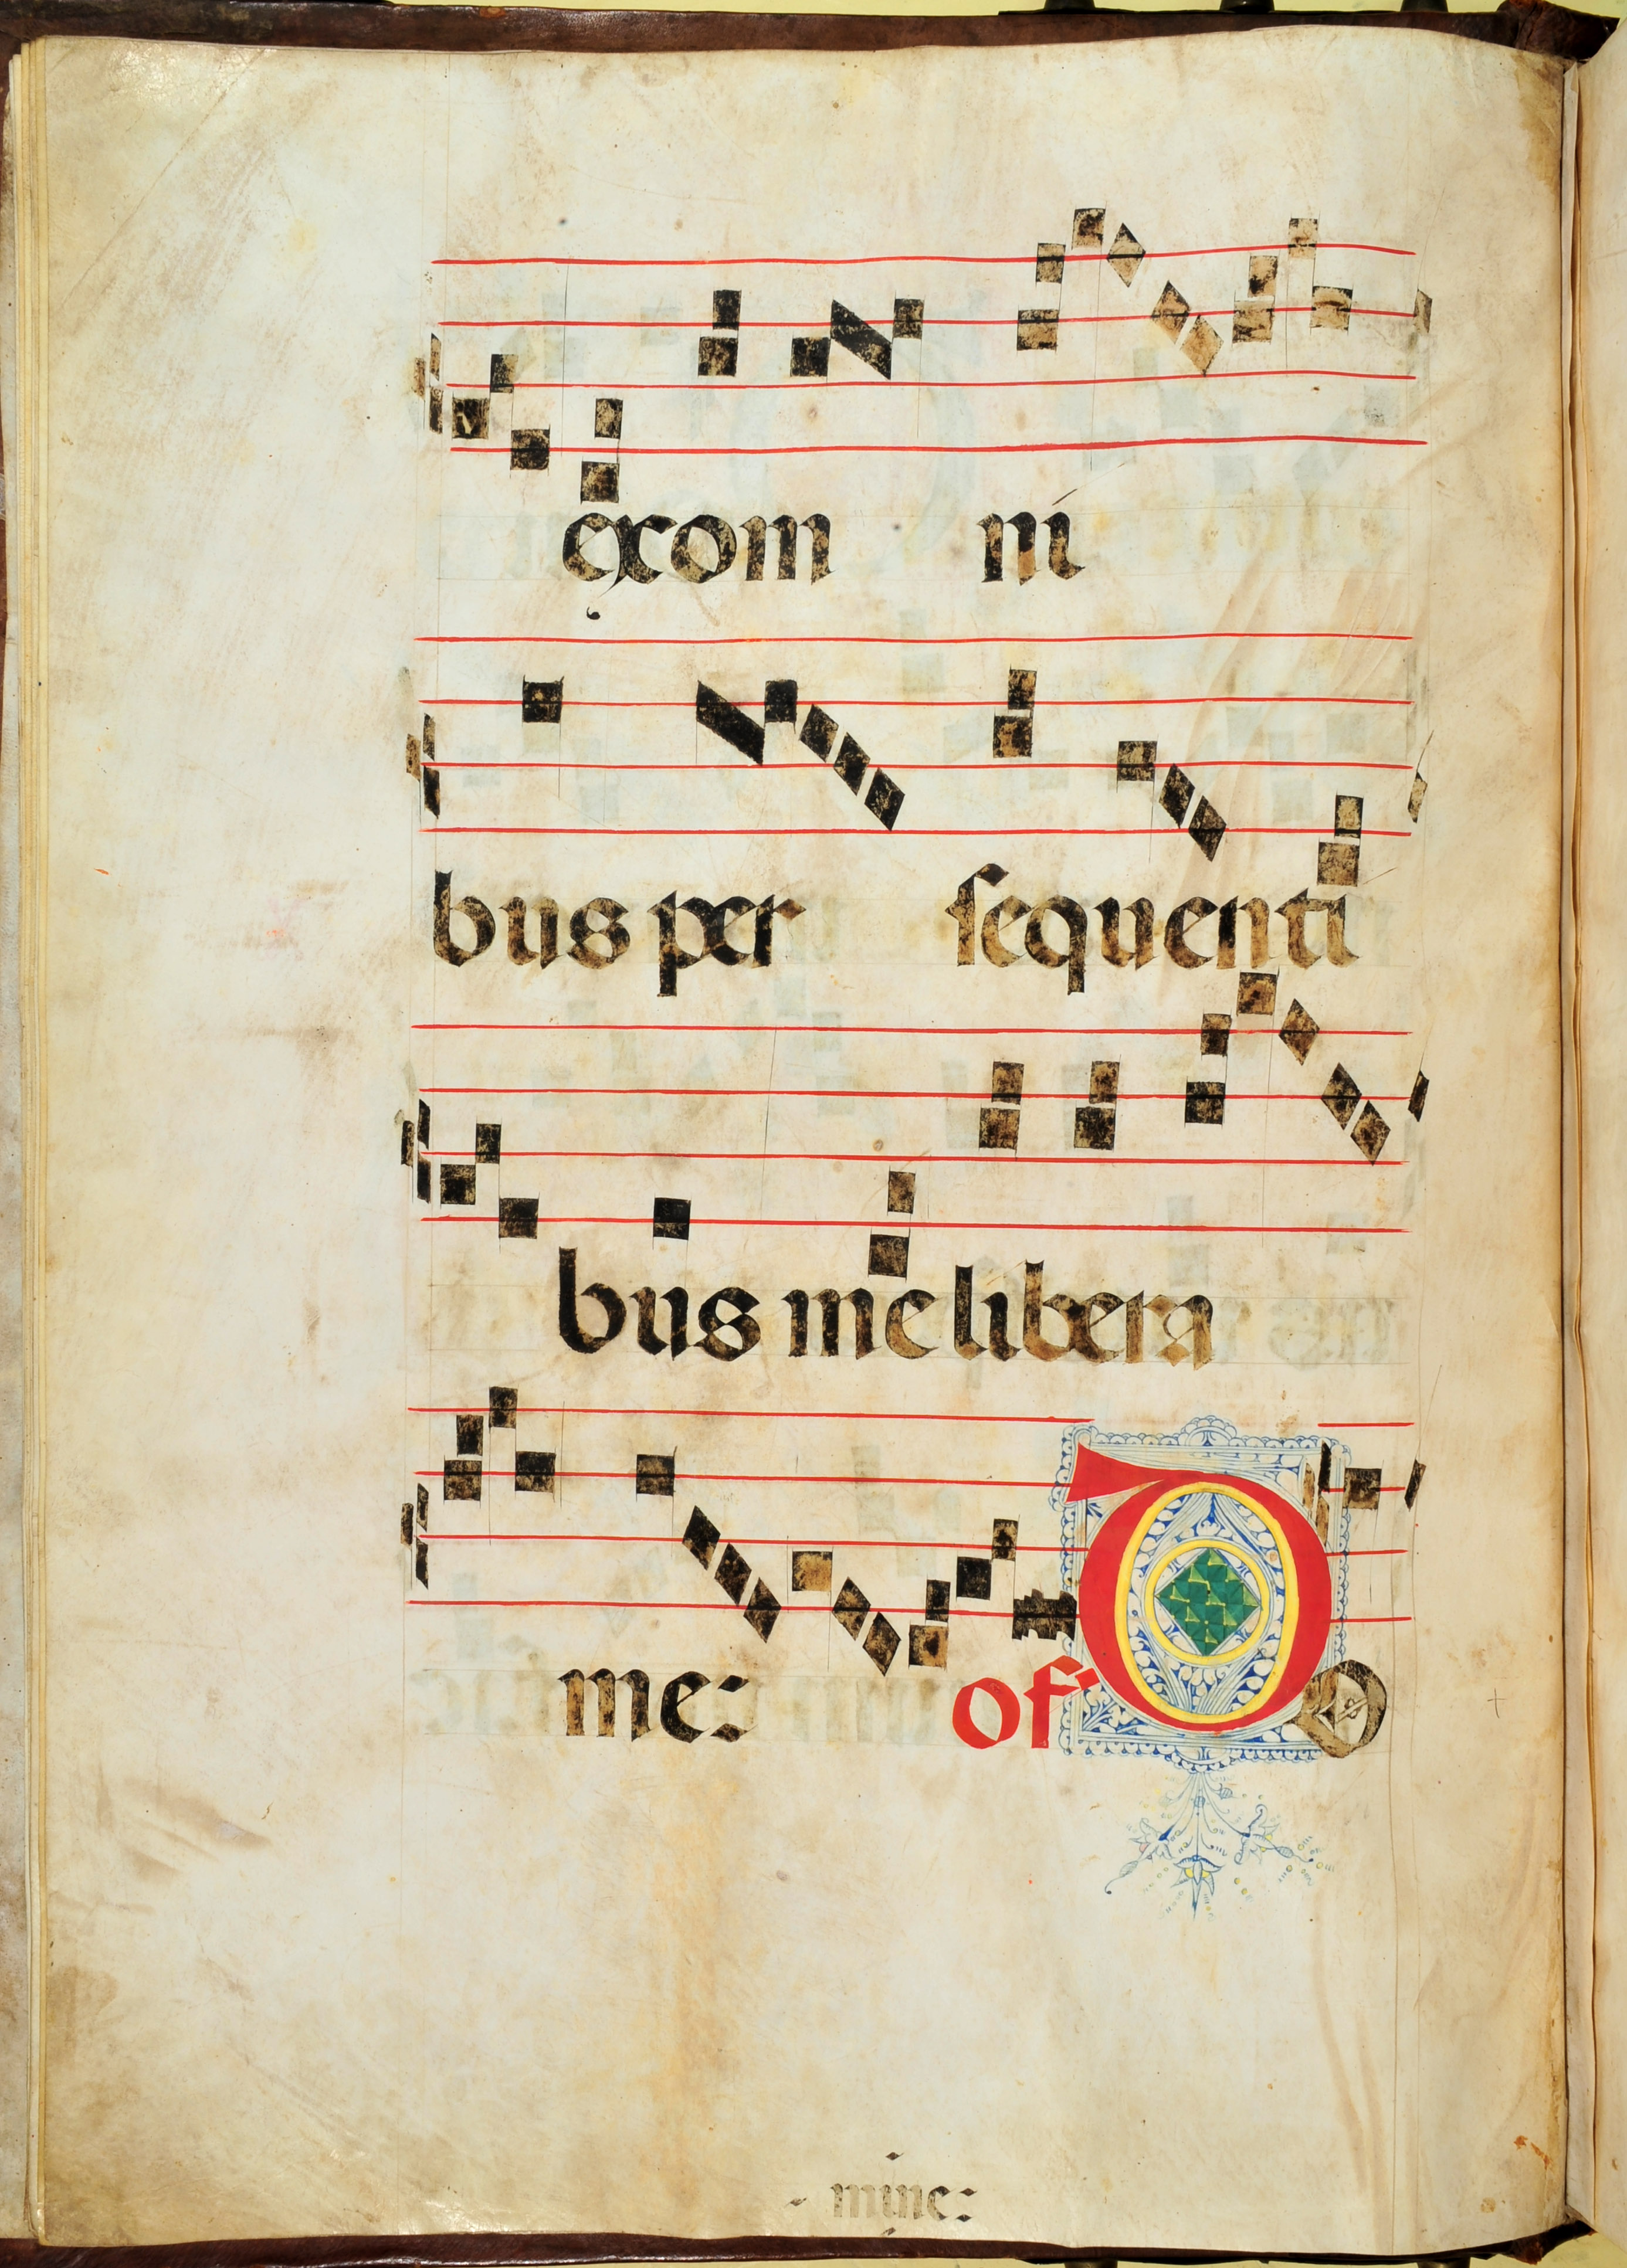 exom ni
bus per sequenti
bus me libera
me: of DO
mine: